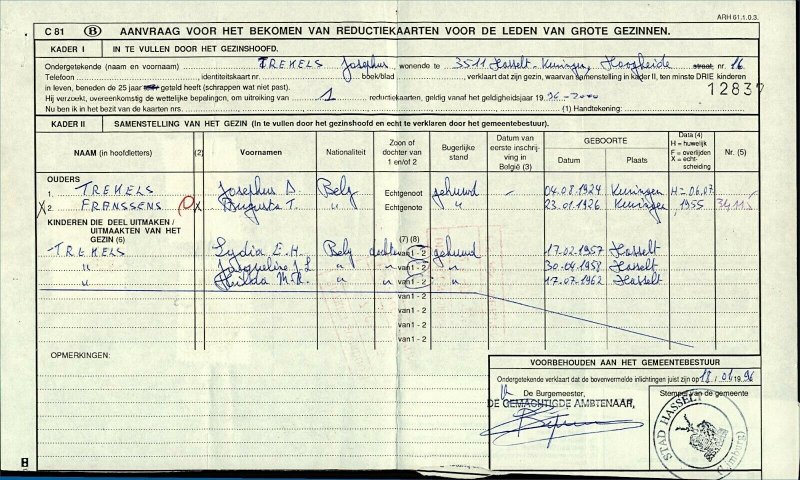 ARH 61.1.0.3.
C 81 B AANVRAAG VOOR HET BEKOMEN VAN REDUCTIEKAARTEN VOOR DE LEDEN VAN GROTE GEZINNEN.
KADER I IN TE VULLEN DOOR HET GEZINSHOOFD.
Ondergetekende (naam en voornaam) TREKELS Josephus, wonende te 3511 Hasselt-Kuringen, Hoogheide straat, nr. 16
Telefoon , identiteitskaart nr. boek/blad , verklaart dat zijn gezin, waarvan samenstelling in kader II, ten minste DRIE kinderen
in leven, beneden de 25 jaar geteld heeft (schrappen wat niet past). 12837
Hij verzoekt, overeenkomstig de wettelijke bepalingen, om uitreiking van 1 reductiekaarten, geldig vanaf het geldigheidsjaar 1996-2000
Nu ben ik in het bezit van de kaarten nrs. (1) Handtekening:
KADER II SAMENSTELLING VAN HET GEZIN (In te vullen door het gezinshoofd en echt te verklaren door het gemeentebestuur).
NAAM (in hoofdletters) (2) Voornamen Nationaliteit Zoon of dochter van 1 en/of 2 Burgerlijke stand Datum van eerste inschrijving in België (3) GEBOORTE Datum Plaats Data (4) H = huwelijk F = overlijden X = echtscheiding Nr. (5)
OUDERS
1. TREKELS Josephus D. Belg Echtgenoot gehuwd - 04.08.1924 Kuringen H = 06.07.
X 2. FRANSSENS X Augusta T. " Echtgenote " 23.01.1926 Kuringen 1955 34115
KINDEREN DIE DEEL UITMAKEN /
UITMAAKTEN VAN HET
GEZIN (6) (7) (8)
TREKELS Lydia E.H. Belg dochter van 1 - 2 gehuwd 17.02.1957 Hasselt
" Jacqueline J.L. " " van 1 - 2 " 30.04.1958 Hasselt
" Hilda M.R. " " van 1 - 2 " 17.07.1962 Hasselt
van 1 - 2
van 1 - 2
van 1 - 2
van 1 - 2
OPMERKINGEN:
VOORBEHOUDEN AAN HET GEMEENTEBESTUUR
Ondergetekende verklaart dat de bovenvermelde inlichtingen juist zijn op 18 / 01 1996
De Burgemeester, Stempel van de gemeente
DE GEMACHTIGDE AMBTENAAR,
STAD HASSELT
(Limburg)